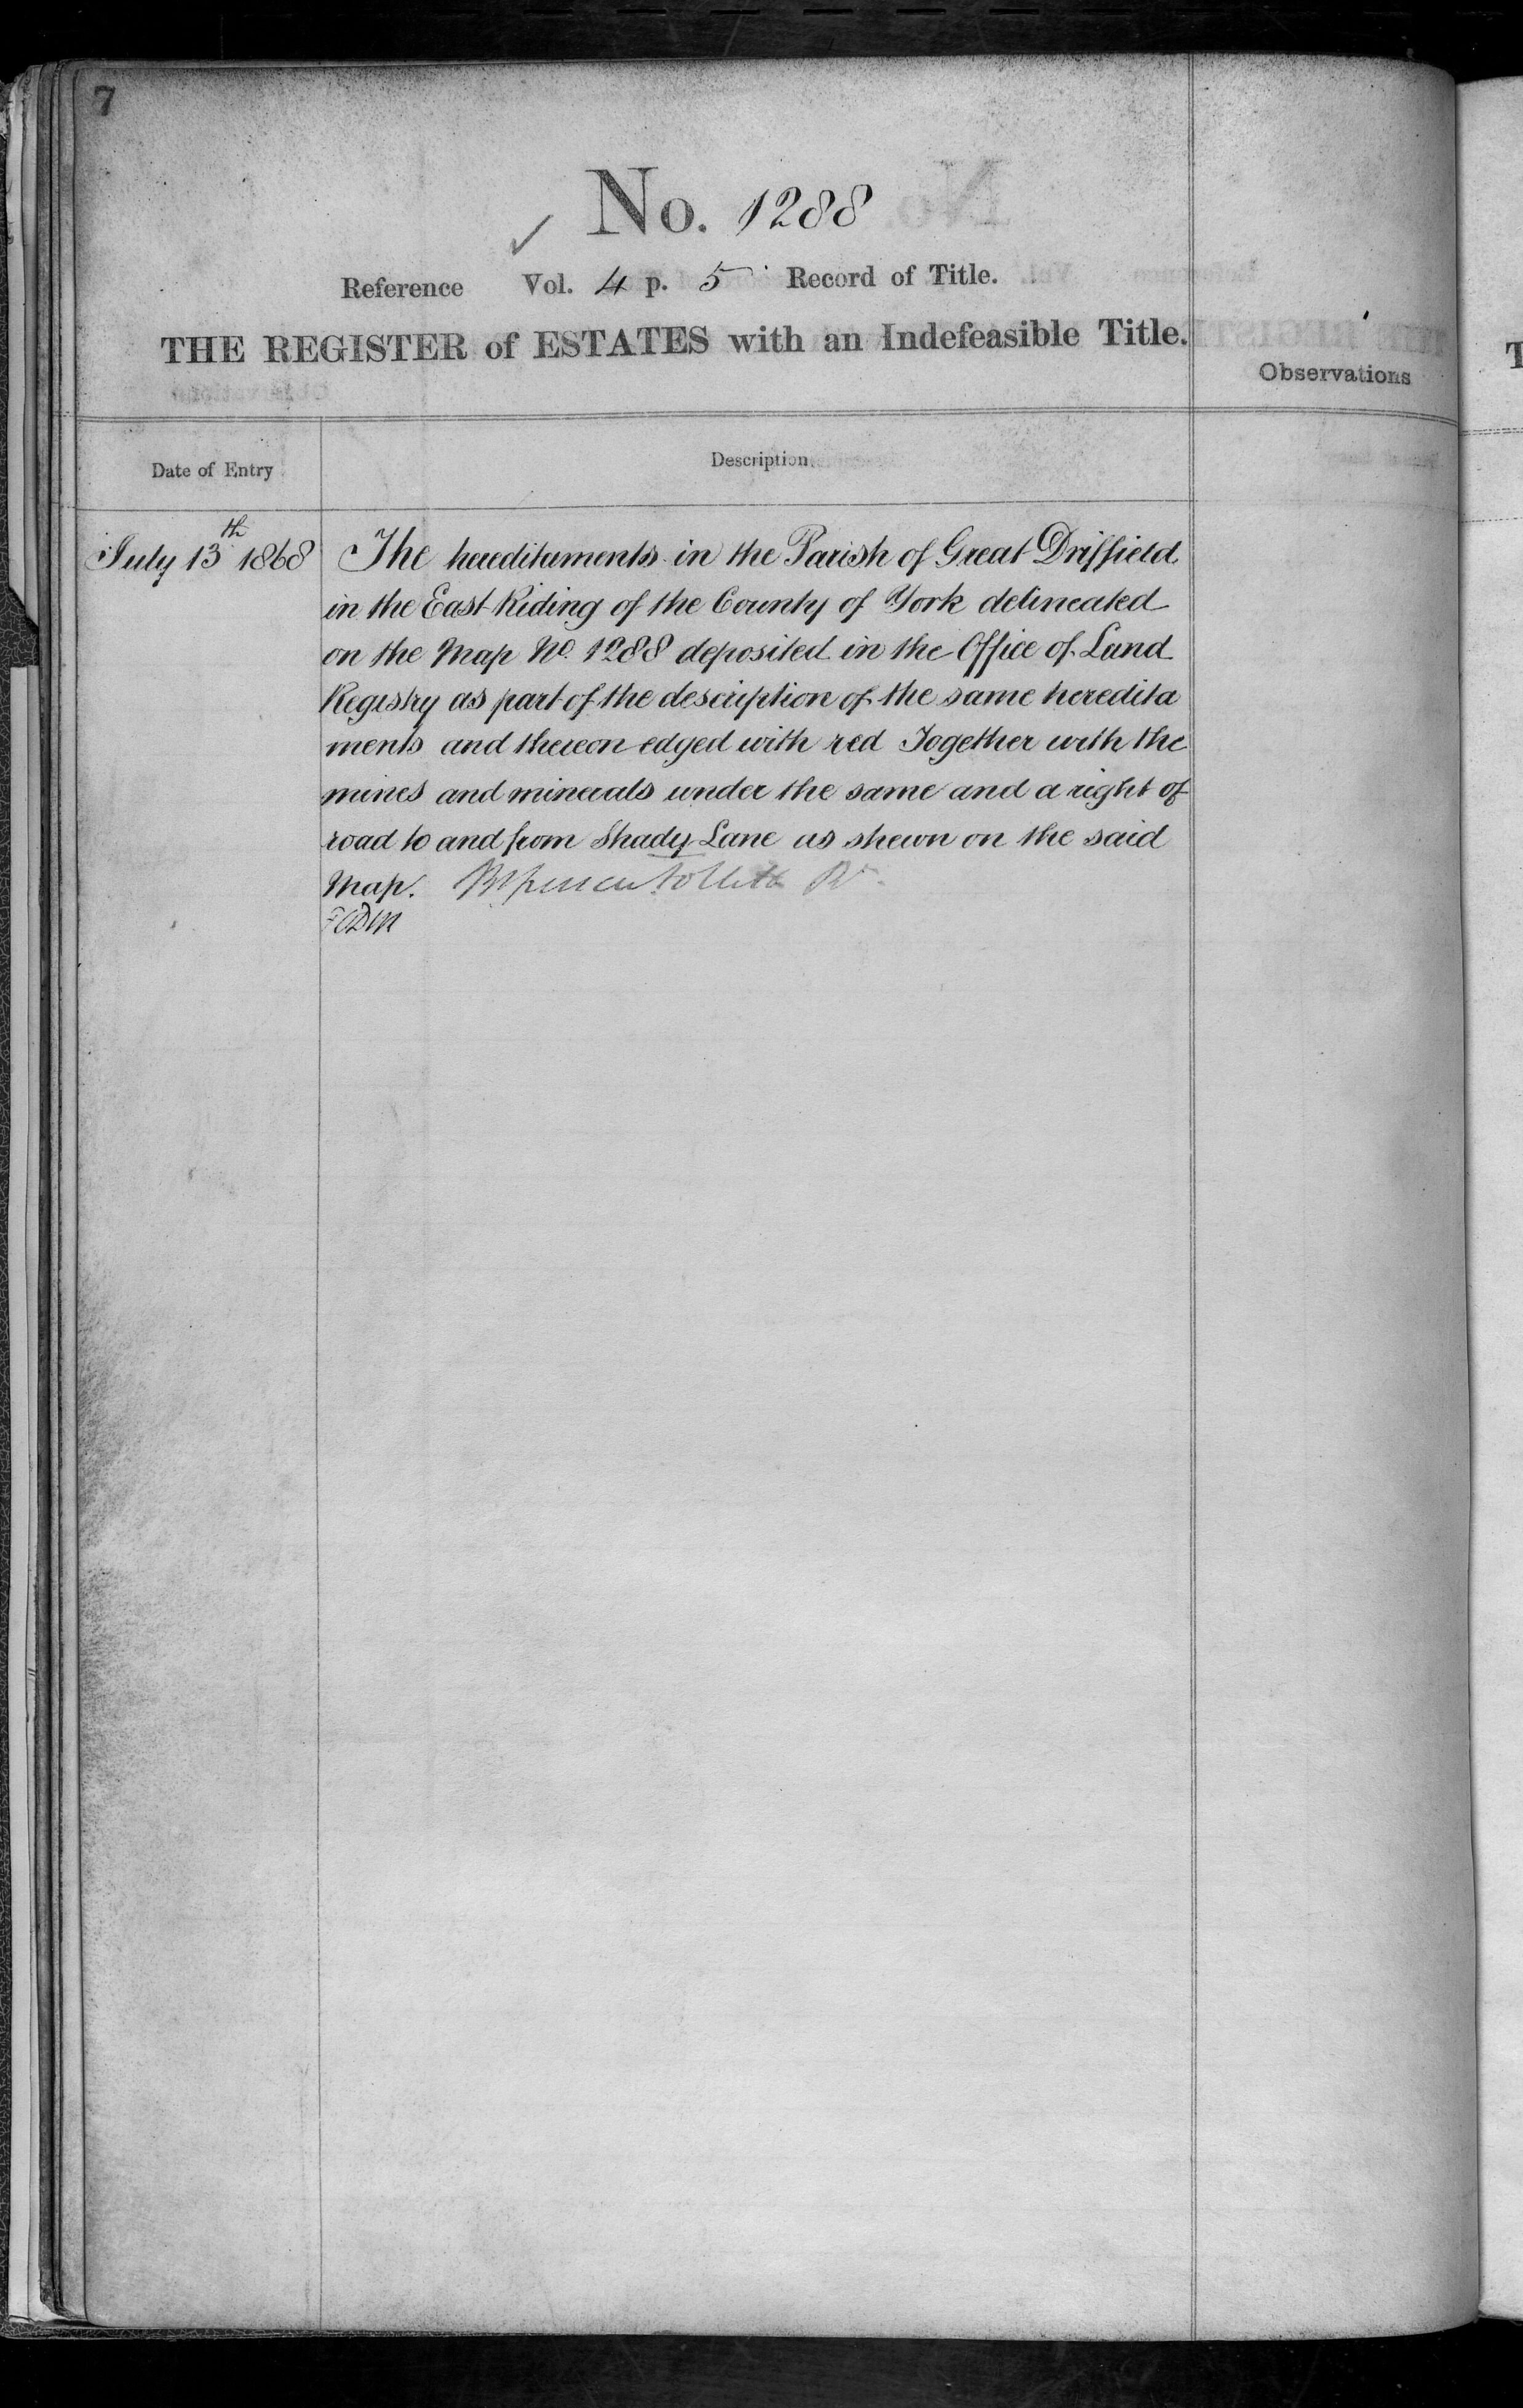 7
No. 1288
Reference Vol. 4 p. 5 Record of Title.
THE REGISTER of ESTATES with an Indefeasible Title.
Observations
Date of Entry
Description
July 13th 1868
The hereditaments in the Parish of Great Driffield
in the East Riding of the County of York delineated
on the Map No. 1288 deposited in the Office of Land
Registry as part of the description of the same heredita
ments and thereon edged with red Together with the
mines and minerals under the same and a right of
road to and from Shady Lane as shewn on the said
Map.